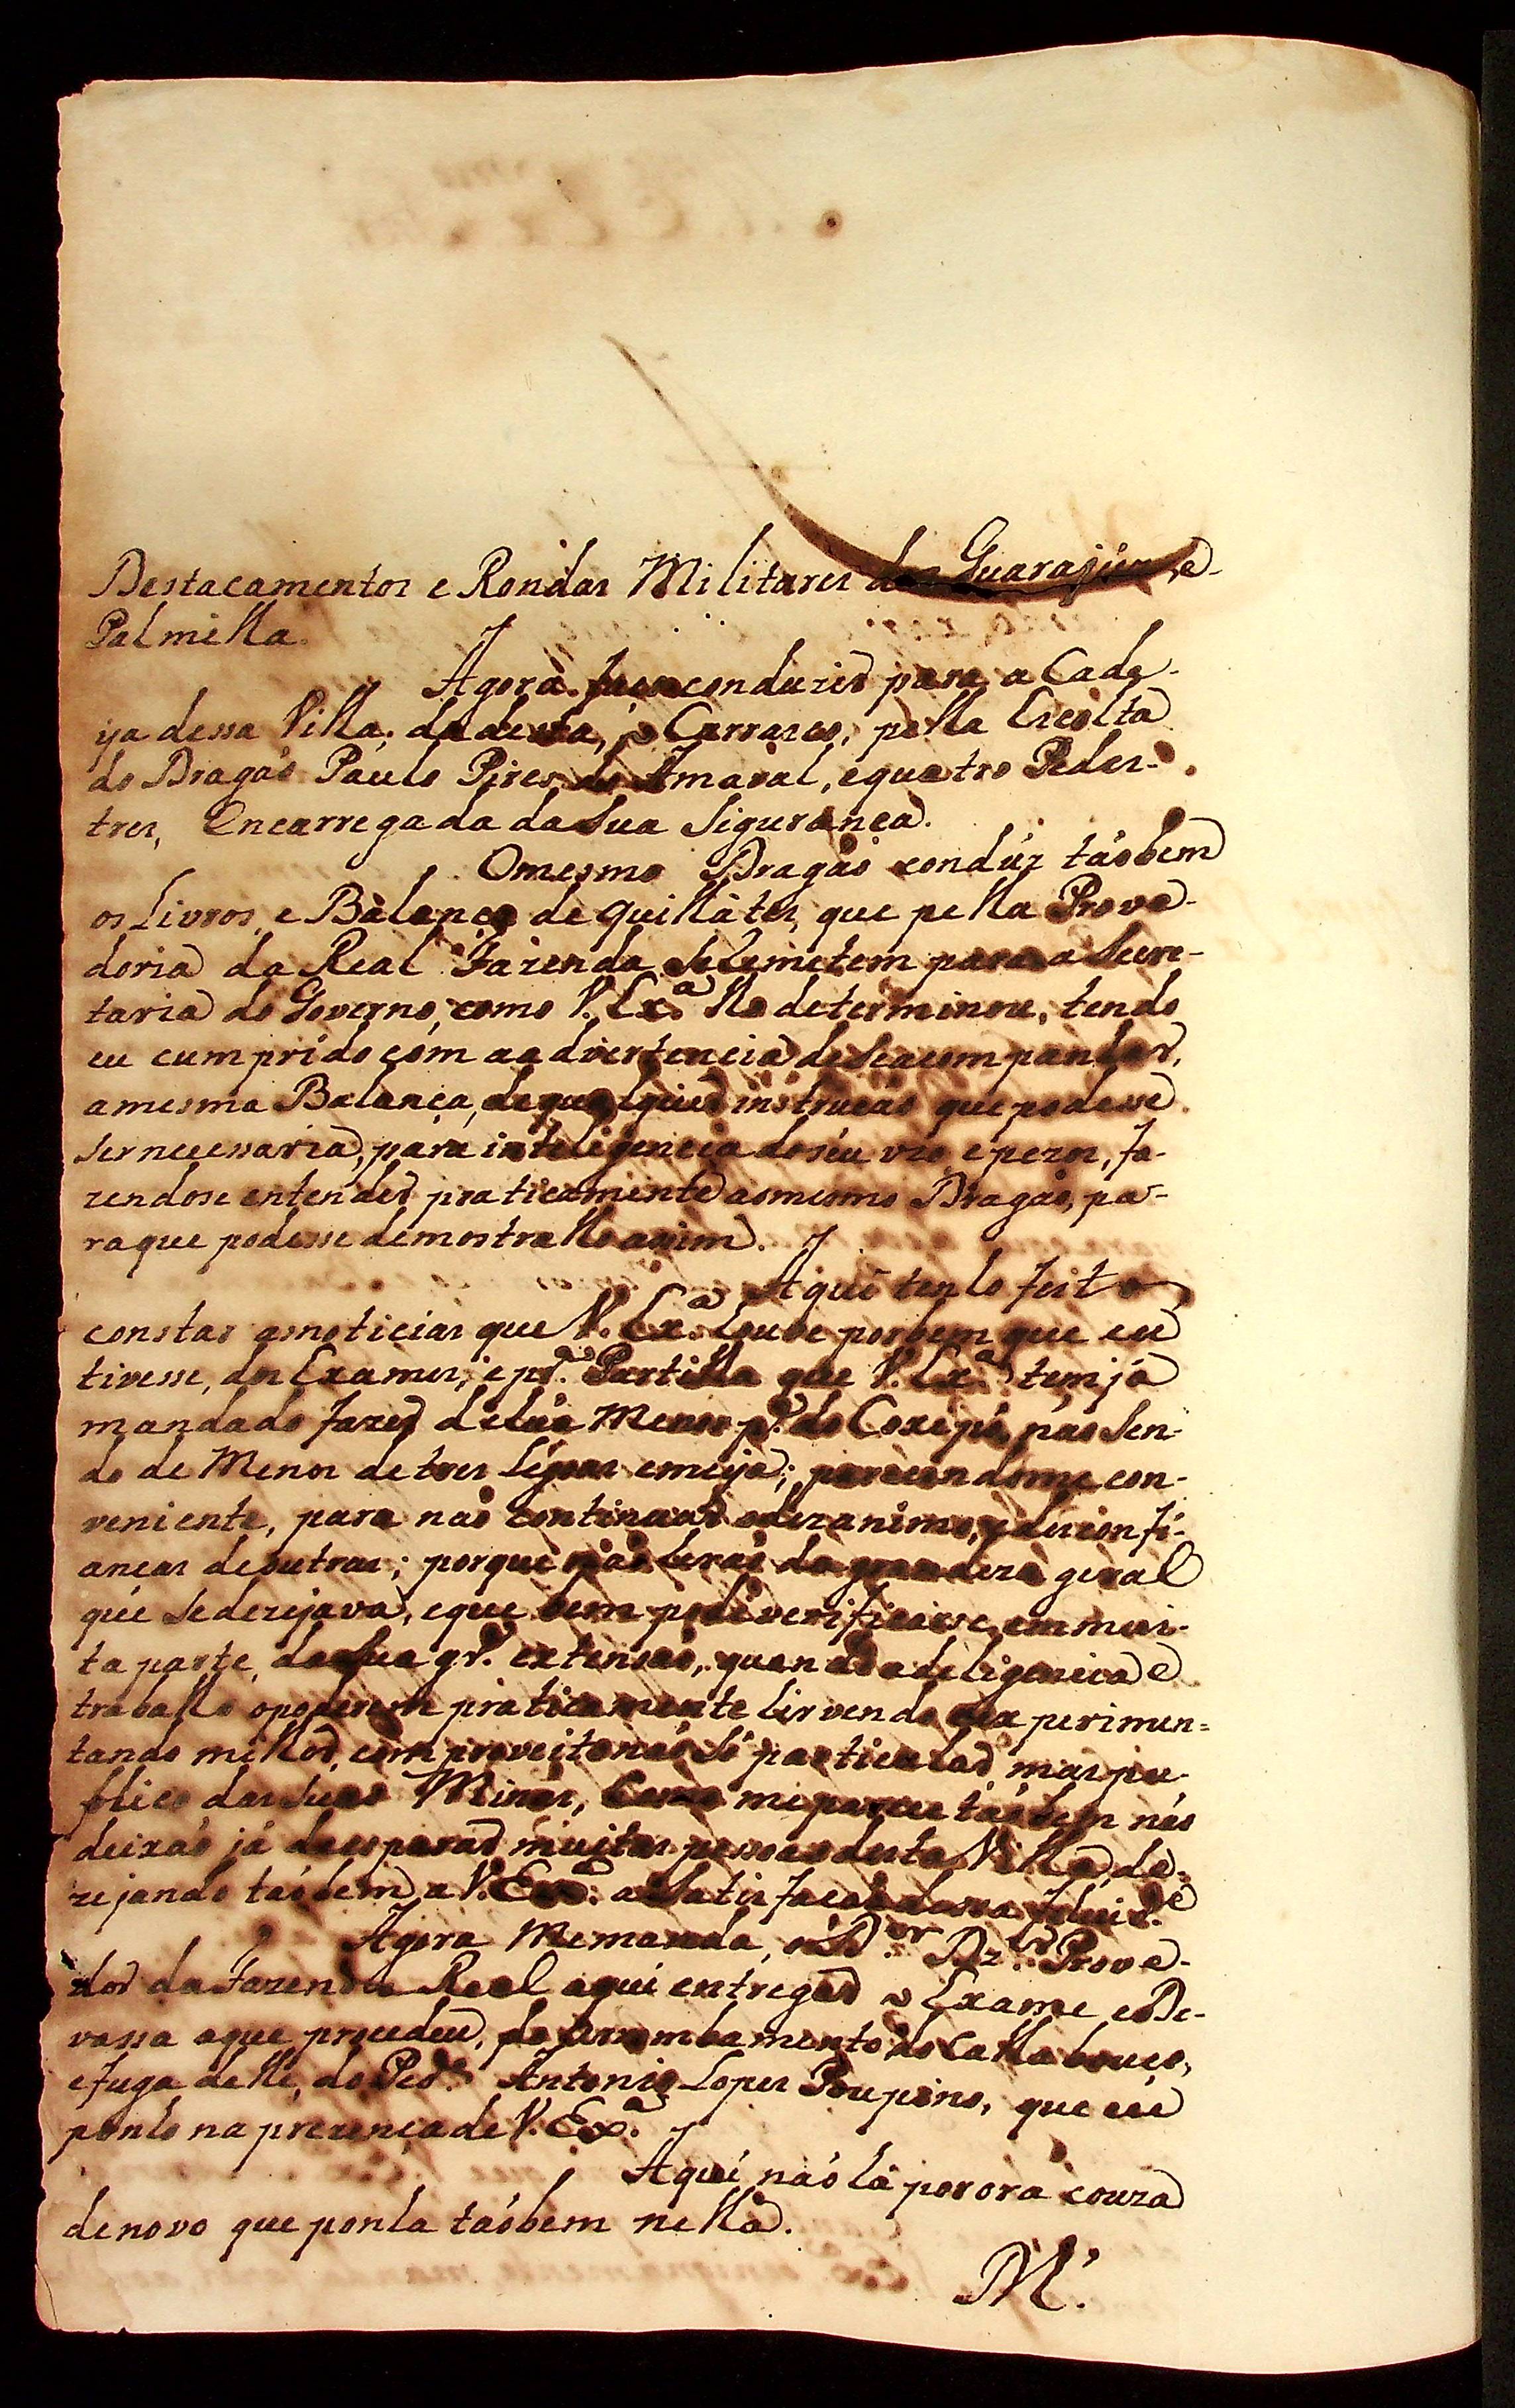 Destacamentos e Rondas Militares das Guarajús, e
Palmilha.
Agora faço conduzir para a Cade-
ya dessa Villa, da desta, o Carrasco, pella Escolta
do Dragaõ Paulo Pires do Amaral, e quatro Pedes-
tres, Encarregada da Sua Sigurança.
Omesmo Dragaõ condúz taõbem
os Livros, e Balança de quillates, que pella Prove-
doria da Real Fazenda Se Remetem para a Secre-
taria do Governo, como V. Exª. lho determinou, tendo
eu cumprido com a advertencia de Seacompanhar,
amesma Balança, dequalquer instruçaõ que podesse
Sernecessaria, para inteligencia doséu uzo epezos, fa-
zendose entender praticamente aomesmo Dragaõ, pa-
raque podesse demostralho assim.
Aqui tenho feito
constar asnoticias que V. Exª. houve porbem que eu
tivesse, dos Exames, e prª. Partilha que V. Exª. temjá
mandado fazer de húa Menor pᵉ. do Coxipó, naõ Sen-
do de Menos de tres légoas emeya; parecendome con-
veniente, para naõ continuar odezanimo, e desconfi-
anças de outras; porque naõ seraõ da grandeza geral
que Sedezejava, eque bem pode verificarse, em mui-
ta parte, da Sua grᵉ. extensaõ, quando adeligencia e
trabalho opoderem praticamente hir vendo e experimen=
tando milhor, com proveito naõ Só particular, mas pu-
blico das Suas Minas, Como me parece taõbem naõ
deixaõ já de esperar muitas pessoas desta Villa, de-
zejando taõbem a V. Exª. a Satisfaçaõ dessa felicidᵉ.
Agora Memanda, o Dºʳ. Dzºʳ. Prove-
dor da Fazenda Real aqui entregar o Exame e De-
vassa aque procedeu, do arrombamento do Callabouço,
efuga delle, do Pedᵉ. Antonio Lopes Poupino, que eu
ponho na prezença de V. Exª.
Aqui naõ há porora couza
denovo que ponha taõbem nella.
M.